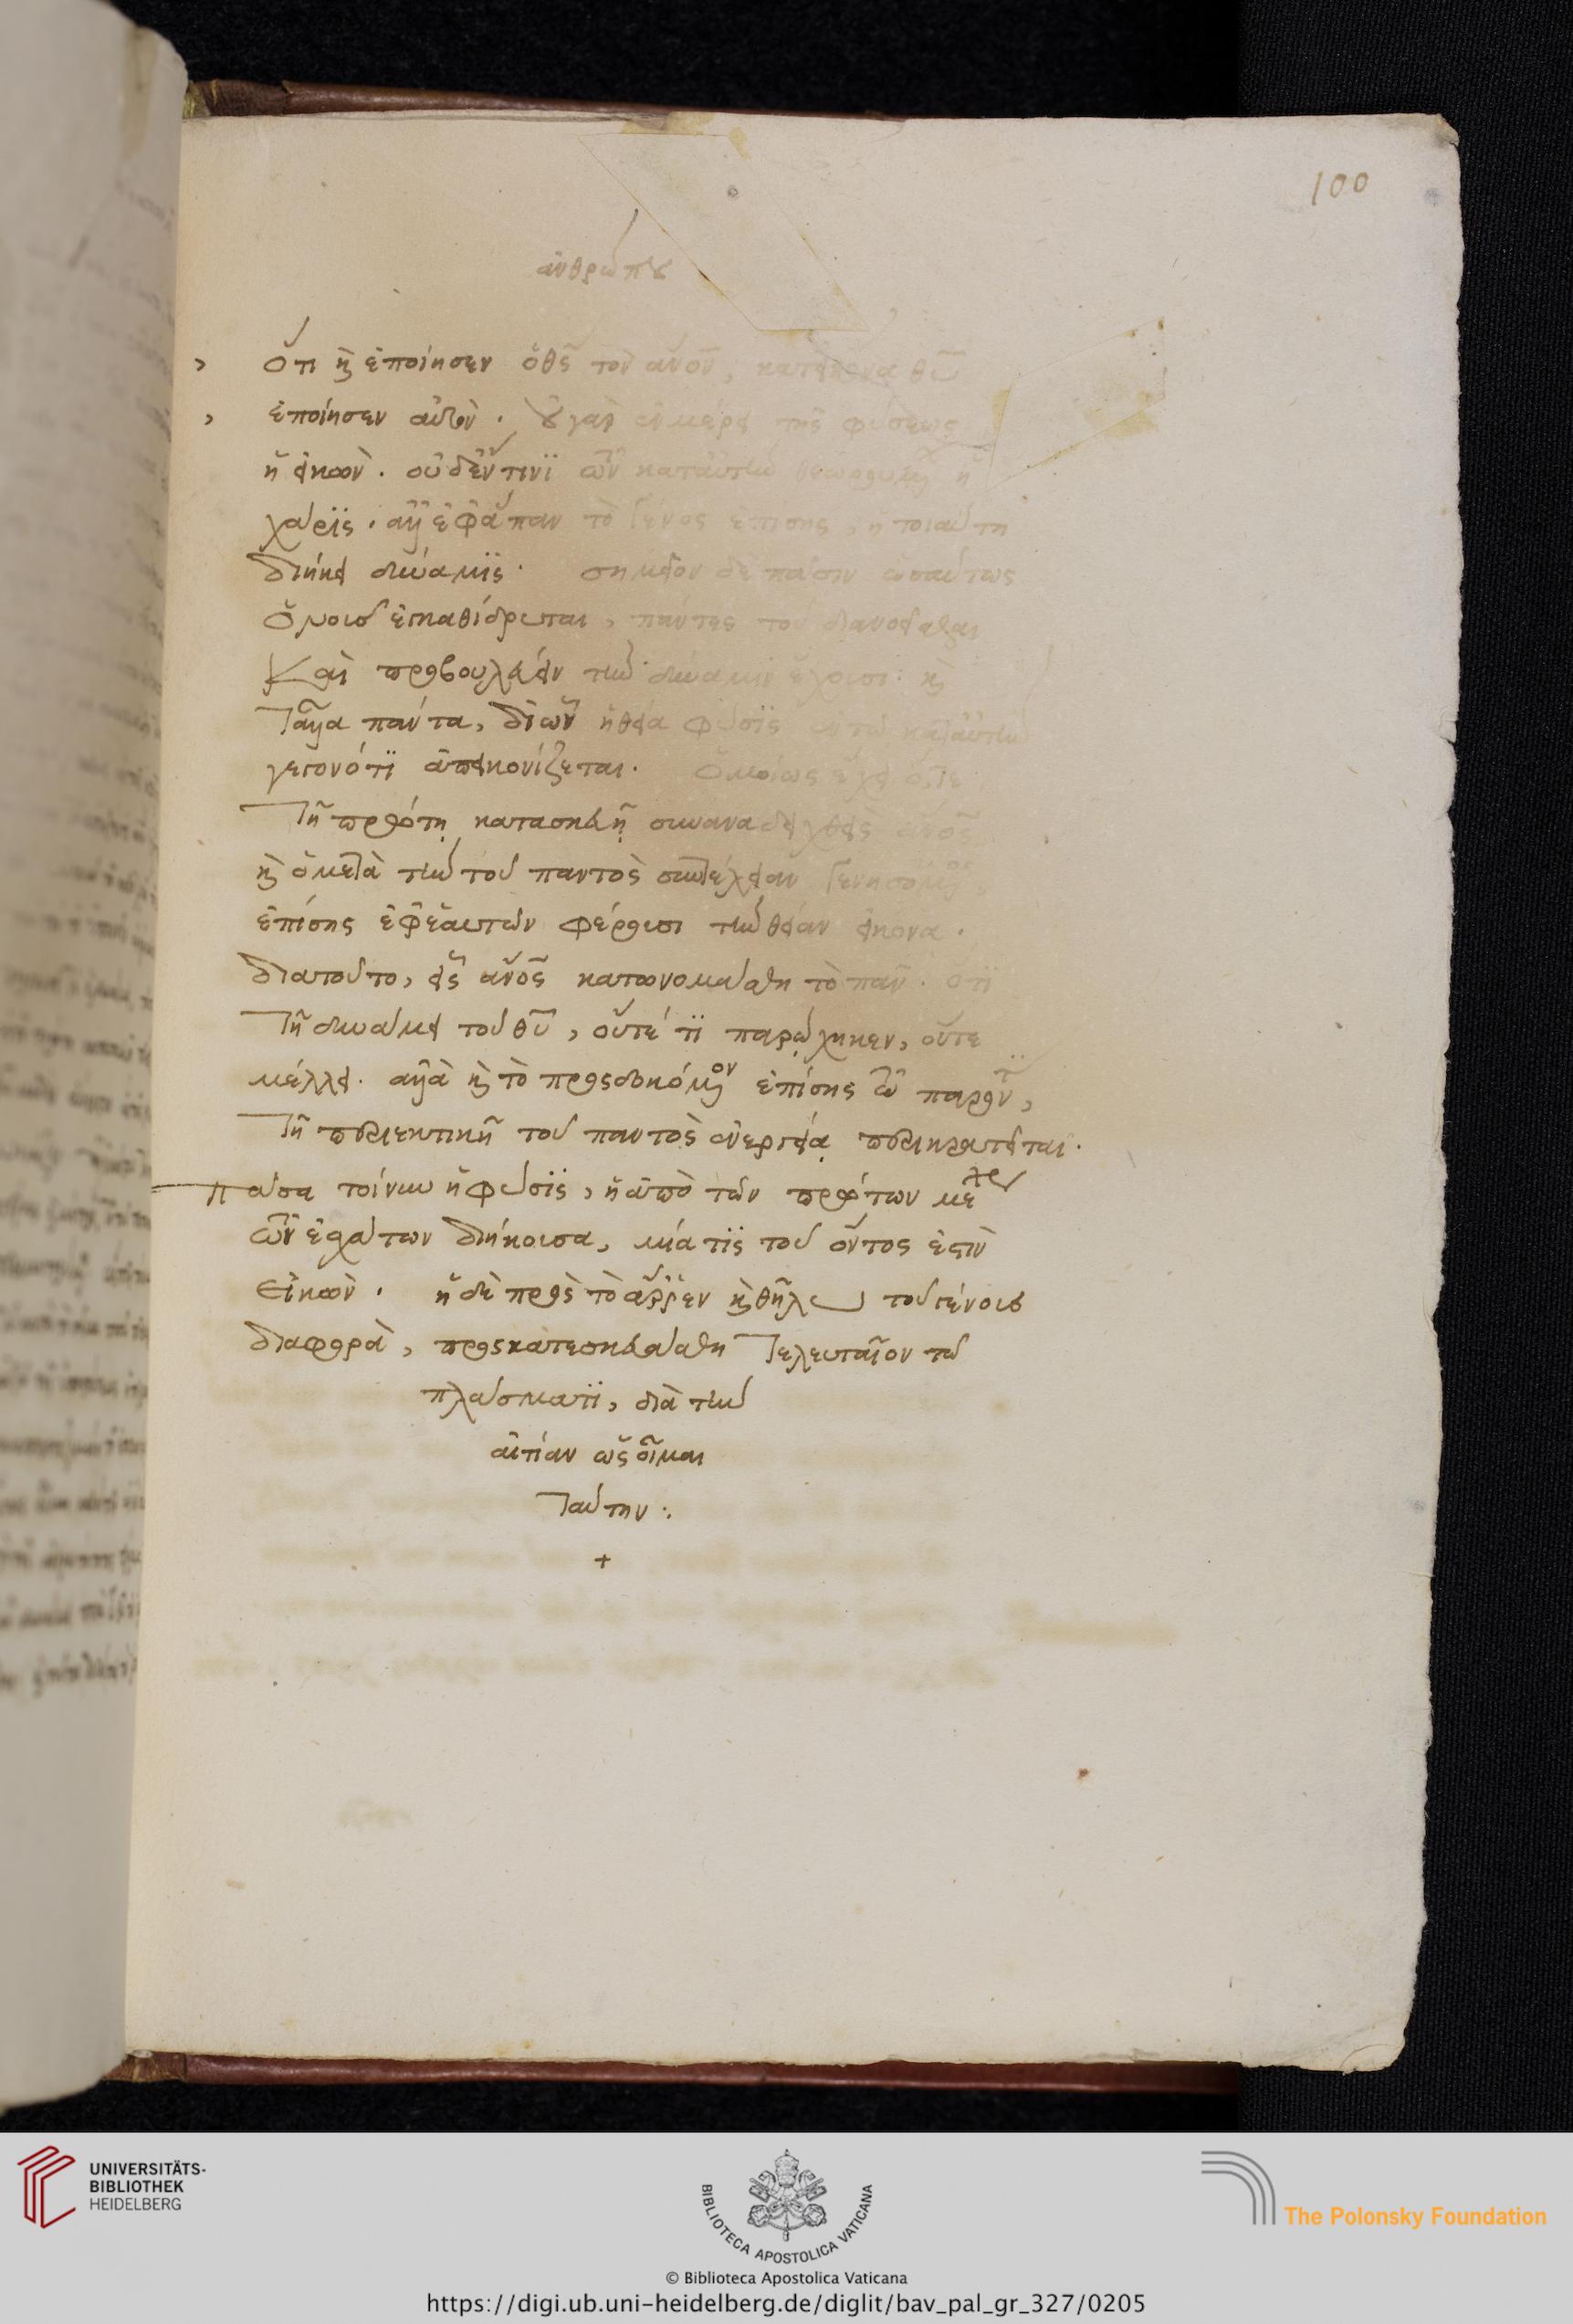 100
ἀνθρώπου
Ὅτι κ(αὶ) ἐποίησεν ὁ θς τὸν ανον, κατ εἰκόνα θυ
ἐποίησεν αὐτόν. οὐ γὰρ ἐν μέρει τῆς φύσεως
ἡ εἰκὼν. οὐδ' ἔν τινϊ τῶν κατ' αὐτὴν θεωρουμ(έν)ων ἡ
χάρϊς. ἀλλ' ἐφάπαν τὸ γένος ἐπίσης, ἡ τοιαύτη
διήκει δύναμϊς. σημεῖον δὲ πᾶσιν ὡσαύτως
ὁ νοῦς ἐγκαθίδρυται, πάντες τοῦ διανοεῖσθαι
Καὶ προβουλεύειν τὴν δύναμιν ἔχουσι. κ(αὶ)
Τἄλλα πάντα, δι ὧν ἡ θεία φύσϊς ἐν τῷ κατ' αὐτὴν
γεγονότϊ ἀπεικονίζεται. Ὁμοίως ἔχει ὅ,τε
Τῇ πρώτῃ κατασκευῇ συναναδειχθεὶς ανος
κ(αὶ) ὁ μετὰ τὴν τοῦ παντὸς συντέλειαν γενησόμ(εν)ος,
ἐπίσης ἐφ' ἑαυτῶν φέρουσι τὴν θείαν εἰκόνα.
διατοῦτο, εἷς ανος κατωνομάσθη τὸ πᾶν. ὅτϊ
Τῇ δυνάμει τοῦ θυ, οὔτέ τϊ παρῴχηκεν, οὔτε
μέλλει. ἀλλὰ κ(αὶ) τὸ προσδοκόμ(εν)ον ἐπίσης τῷ παρόντϊ,
Τῇ περιεκτικῇ τοῦ παντὸς ἐνεργείᾳ περικρατεῖται.
Πᾶσα τοίνυν ἡ φύσϊς, ἡ ἀπὸ τῶν πρώτων μέχρι
τῶν ἐσχάτων διήκουσα, μία τϊς τοῦ ὄντος ἐστὶν
Εἰκὼν. ἡ δὲ πρὸς τὸ ἄῤῥεν κ(αὶ) θῆλυ τοῦ γένους
διαφορὰ, προσκατεσκευάσθη Τελευταῖον τῷ
πλάσματϊ, διὰ τὴν
αἰτίαν ὡς οἶμαι
Ταύτην:.
+
UNIVERSITÄTS-
BIBLIOTHEK
HEIDELBERG
BIBLIOTECA APOSTOLICA VATICANA
© Biblioteca Apostolica Vaticana
The Polonsky Foundation
https://digi.ub.uni-heidelberg.de/diglit/bav_pal_gr_327/0205